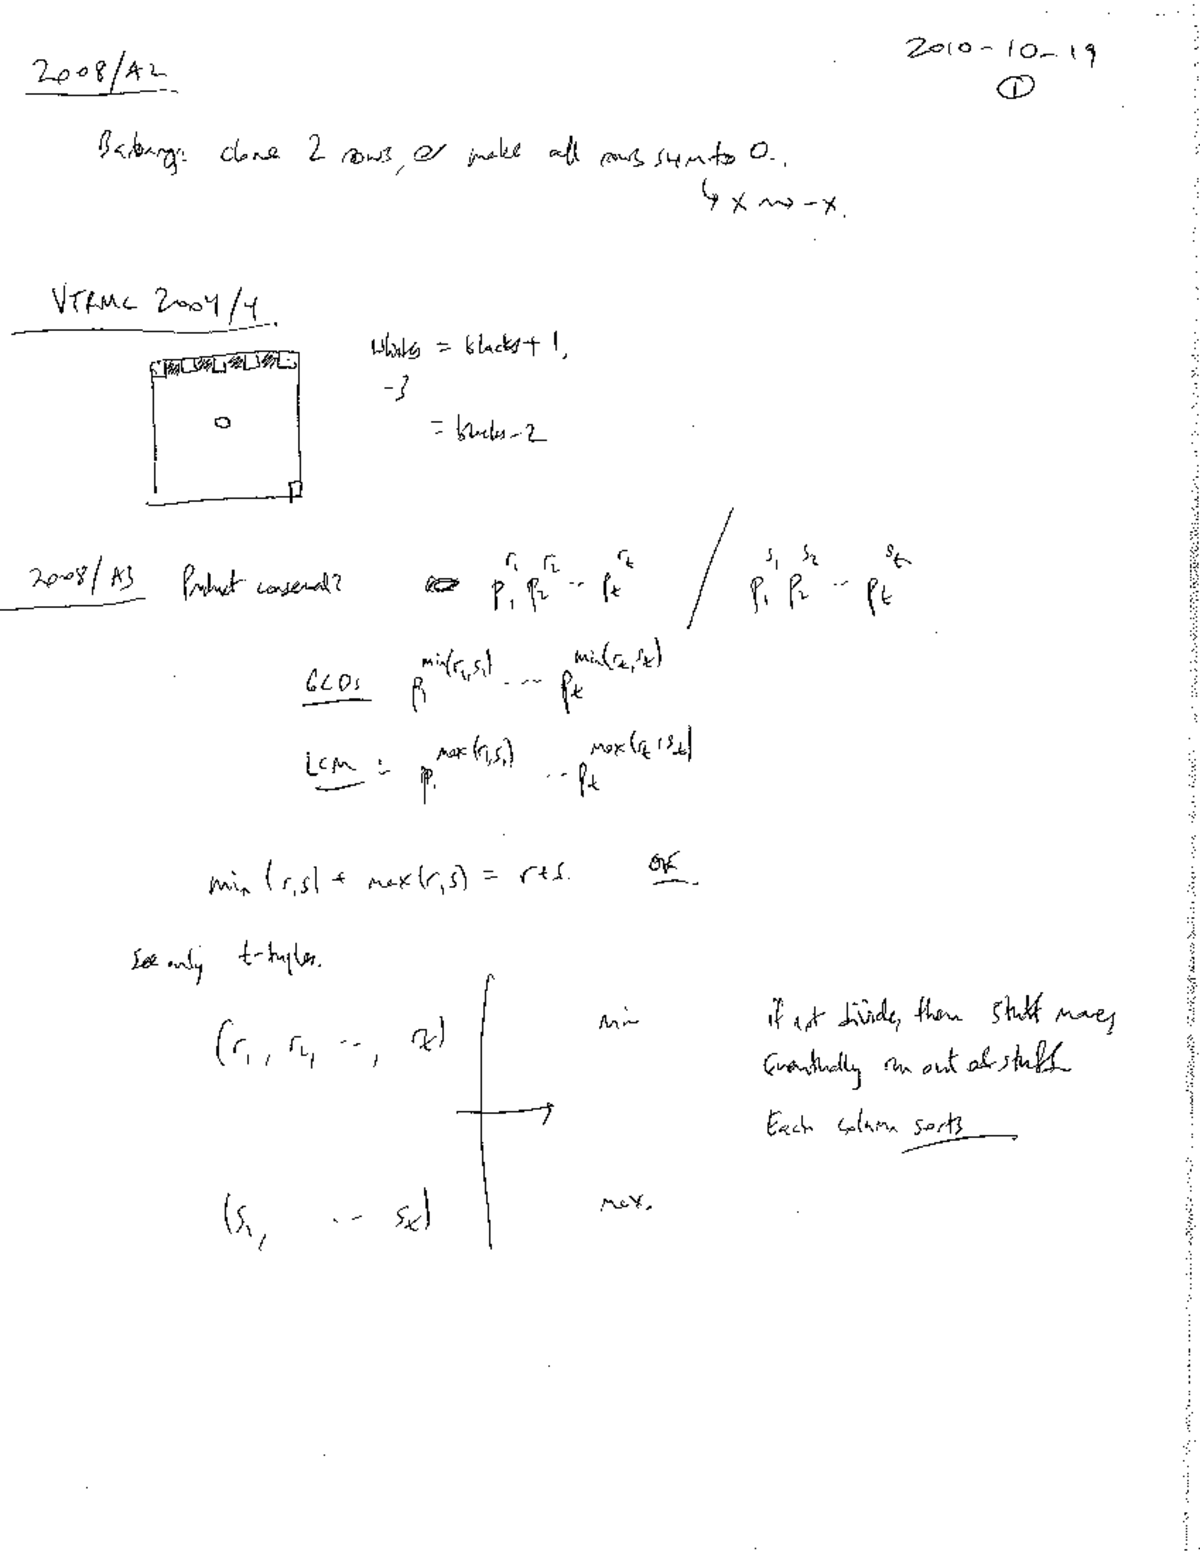 2008/A2
2010-10-19
①
Barbara: clone 2 rows, or make all rows sum to 0.
↳ x ⇝ -x.
VTRMC 2004/4
Whites = blacks + 1,
-3
= blacks - 2
2008/A3 Product conserved? p₁^r₁ p₂^r₂ ·· pₜ^rₜ / p₁^s₁ p₂^s₂ ·· pₜ^sₜ
GCDs p₁^min(r₁,s₁) ·-· pₜ^min(rₜ,sₜ)
LCM : p₁^max(r₁,s₁) ·· pₜ^max(rₜ,sₜ)
min(r,s) + max(r,s) = r+s. OK
See only t-tuples.
(r₁, r₂, ··, rₜ) min
if not divide, then stuff moves
Eventually run out of stuff
Each column sorts
(s₁, ·· sₜ) max.